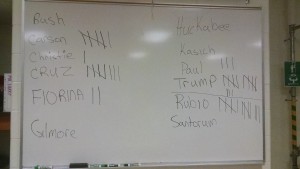 Bush
Carson
Christie
CRUZ
FIORINA
Gilmore
Huckabee
Kasich
Paul
Trump
Rubio
Santorum